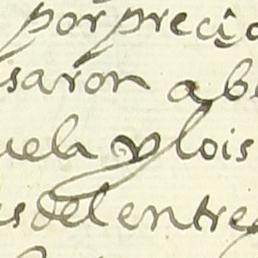 por preçio
saron abe
uela y lois
es del entre